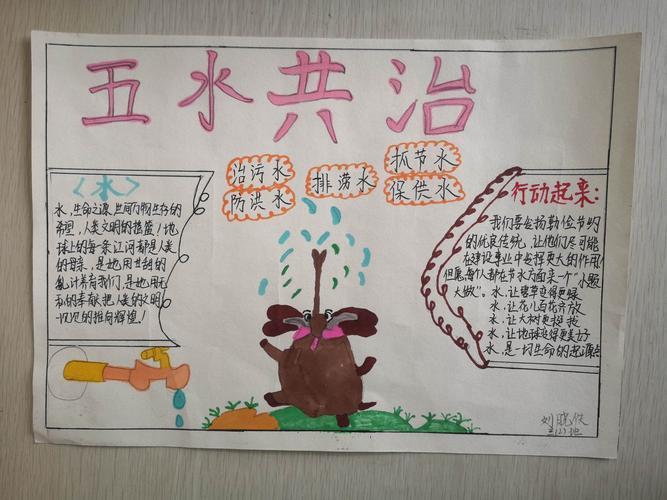 五水共治
治污水
防洪水
排涝水
抓节水
保供水
<水>
水,生命之源,世间万物生存的
希望,人类文明的摇篮!地
球上的每一条江河都是人类
的母亲,是她用甘甜的
乳汁养育我们,是她用无
私的奉献把人类的文明
一次次的推向辉煌!
行动起来:
我们要发扬勤俭节约
的优良传统,让他们尽可能
在建设事业中发挥更大的作用!
但愿,每个人都在节水方面来一个"小题
大做"。水,让碧草变得更绿
水,让花儿百花齐放
水,让大树更挺拔
水,让地球变得更美好
水,是一切生命的起源点
刘晓